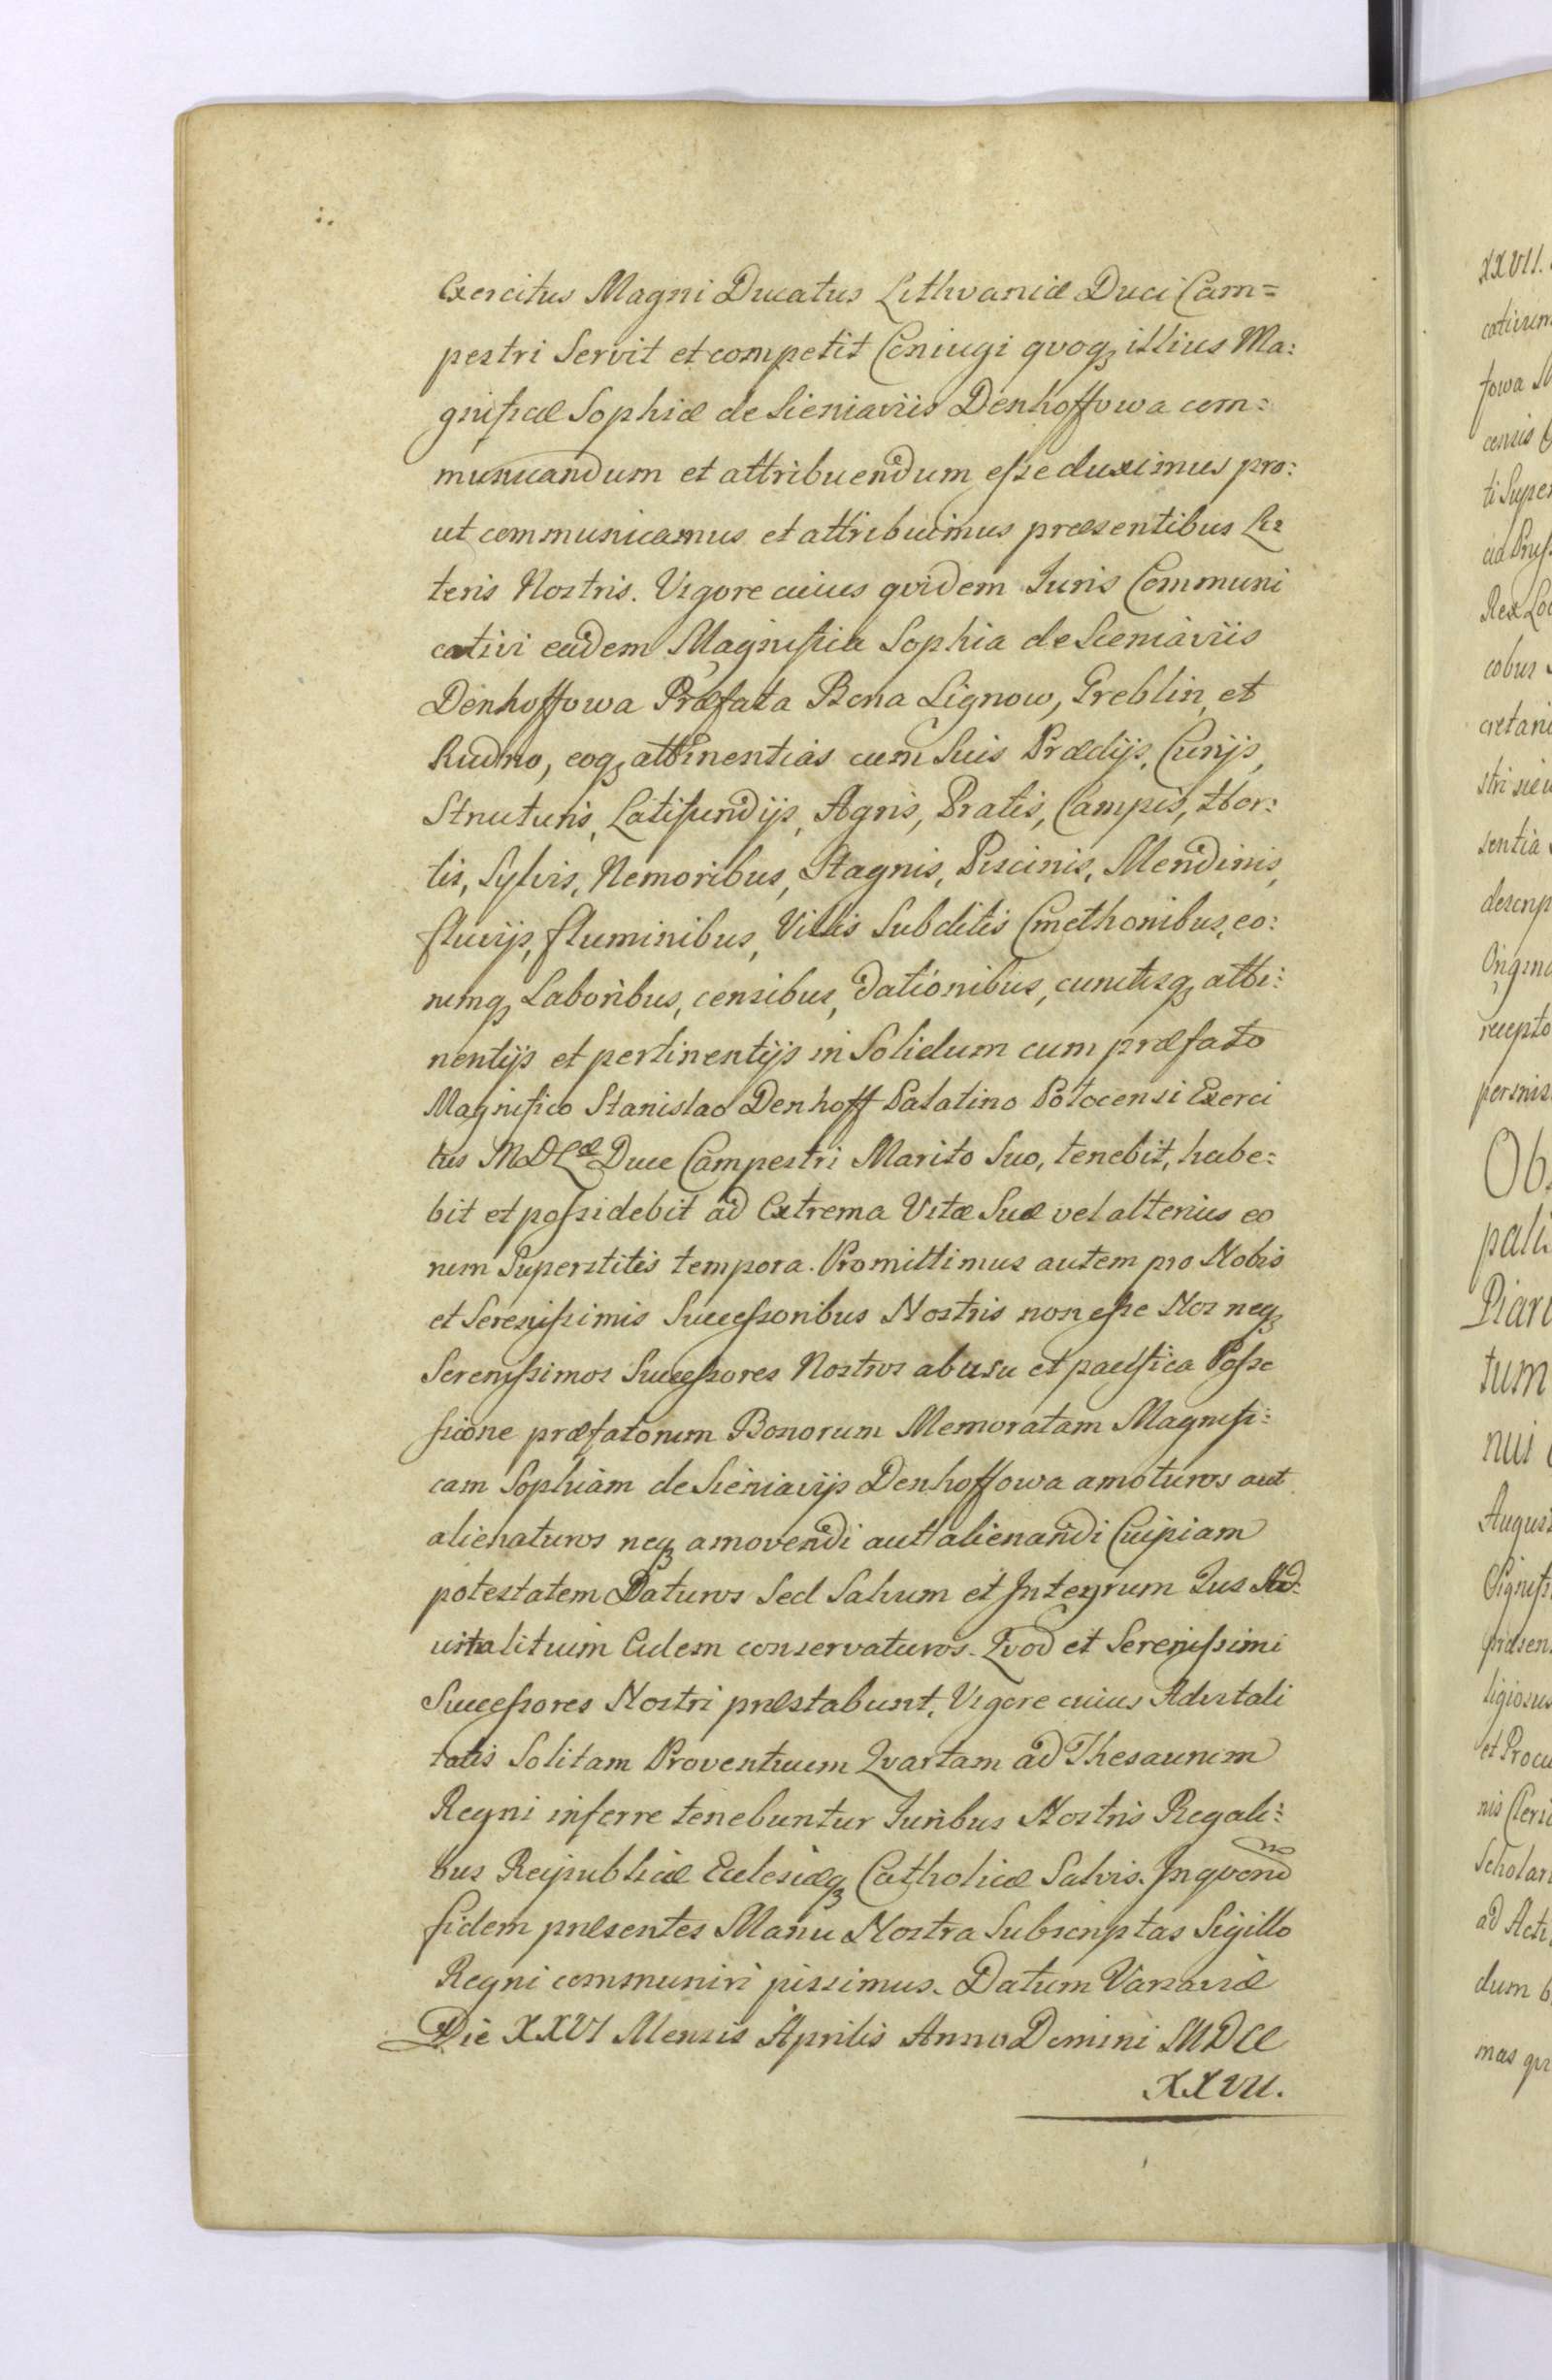 Exercitus Magni Ducatus Lithvaniæ Duci Cam=
pestri Servit et competit Coniugi qvoqꝫ illius Ma:
gnificæ Sophiæ de Sieniaviis Denhoffowa com:
municandum et attribuendum esse duximus pro:
ut communicamus et attribuimus præsentibus Li:
teris Nostris. Vigore cuius qvidem Iuris Communi
cativi eadem Magnifica Sophia de Sieniaviis
Denhoffowa Præfata Bona Lignow, Greblin, et
Rudno, eoqꝫ attinentias cum Suis Prædijs, Curijs,
Structuris, Latifundijs, Agris, Pratis, Campis, Hor:
tis, Sylvis, Nemoribus, Stagnis, Piscinis, Mendinis,
fluvijs, fluminibus, Villis Subditis Cmethonibus, eo:
rumqꝫ Laboribus, censibus, dationibus, cunctisqꝫ atti:
nentijs et pertinentijs in Solidum cum præfato
Magnifico Stanislao Denhoff Palatino Polocensi Exerci
tus MDLæ Duce Campestri Marito Suo, tenebit, habe:
bit et possidebit ad Extrema Vitæ Suæ vel alterius eo
rum Superstitis tempora. Promittimus autem pro Nobis
et Serenissimis Successoribus Nostris non esse Nos neqꝫ
Serenissimos Successores Nostros ab usu et pacifica Posse
ssione præfatorum Bonorum Memoratam Magnifi:
cam Sophiam de Sieniavijs Denhoffowa amoturos aut
alienaturos neqꝫ amovendi aut alienandi Cuipiam
potestatem Daturos Sed Salvum et Integrum Ius Ad:
vitalituim Eidem conservaturos. Qvod et Serenissimi
Successores Nostri præstabunt. Vigore cuius Advitali
tatis Solitam Proventuum Qvartam ad Thesaurum
Regni inferre tenebuntur Iuribus Nostris Regali:
bus Reipublicæ Ecclesiæqꝫ Catholicæ Salvis. In qvorum
fidem præsentes Manu Nostra Subscriptas Sigillo
Regni communiri jussimus. Datum Varsaviæ
Die XXVI Mensis Aprilis Anno Domini MDCC
XXVII.